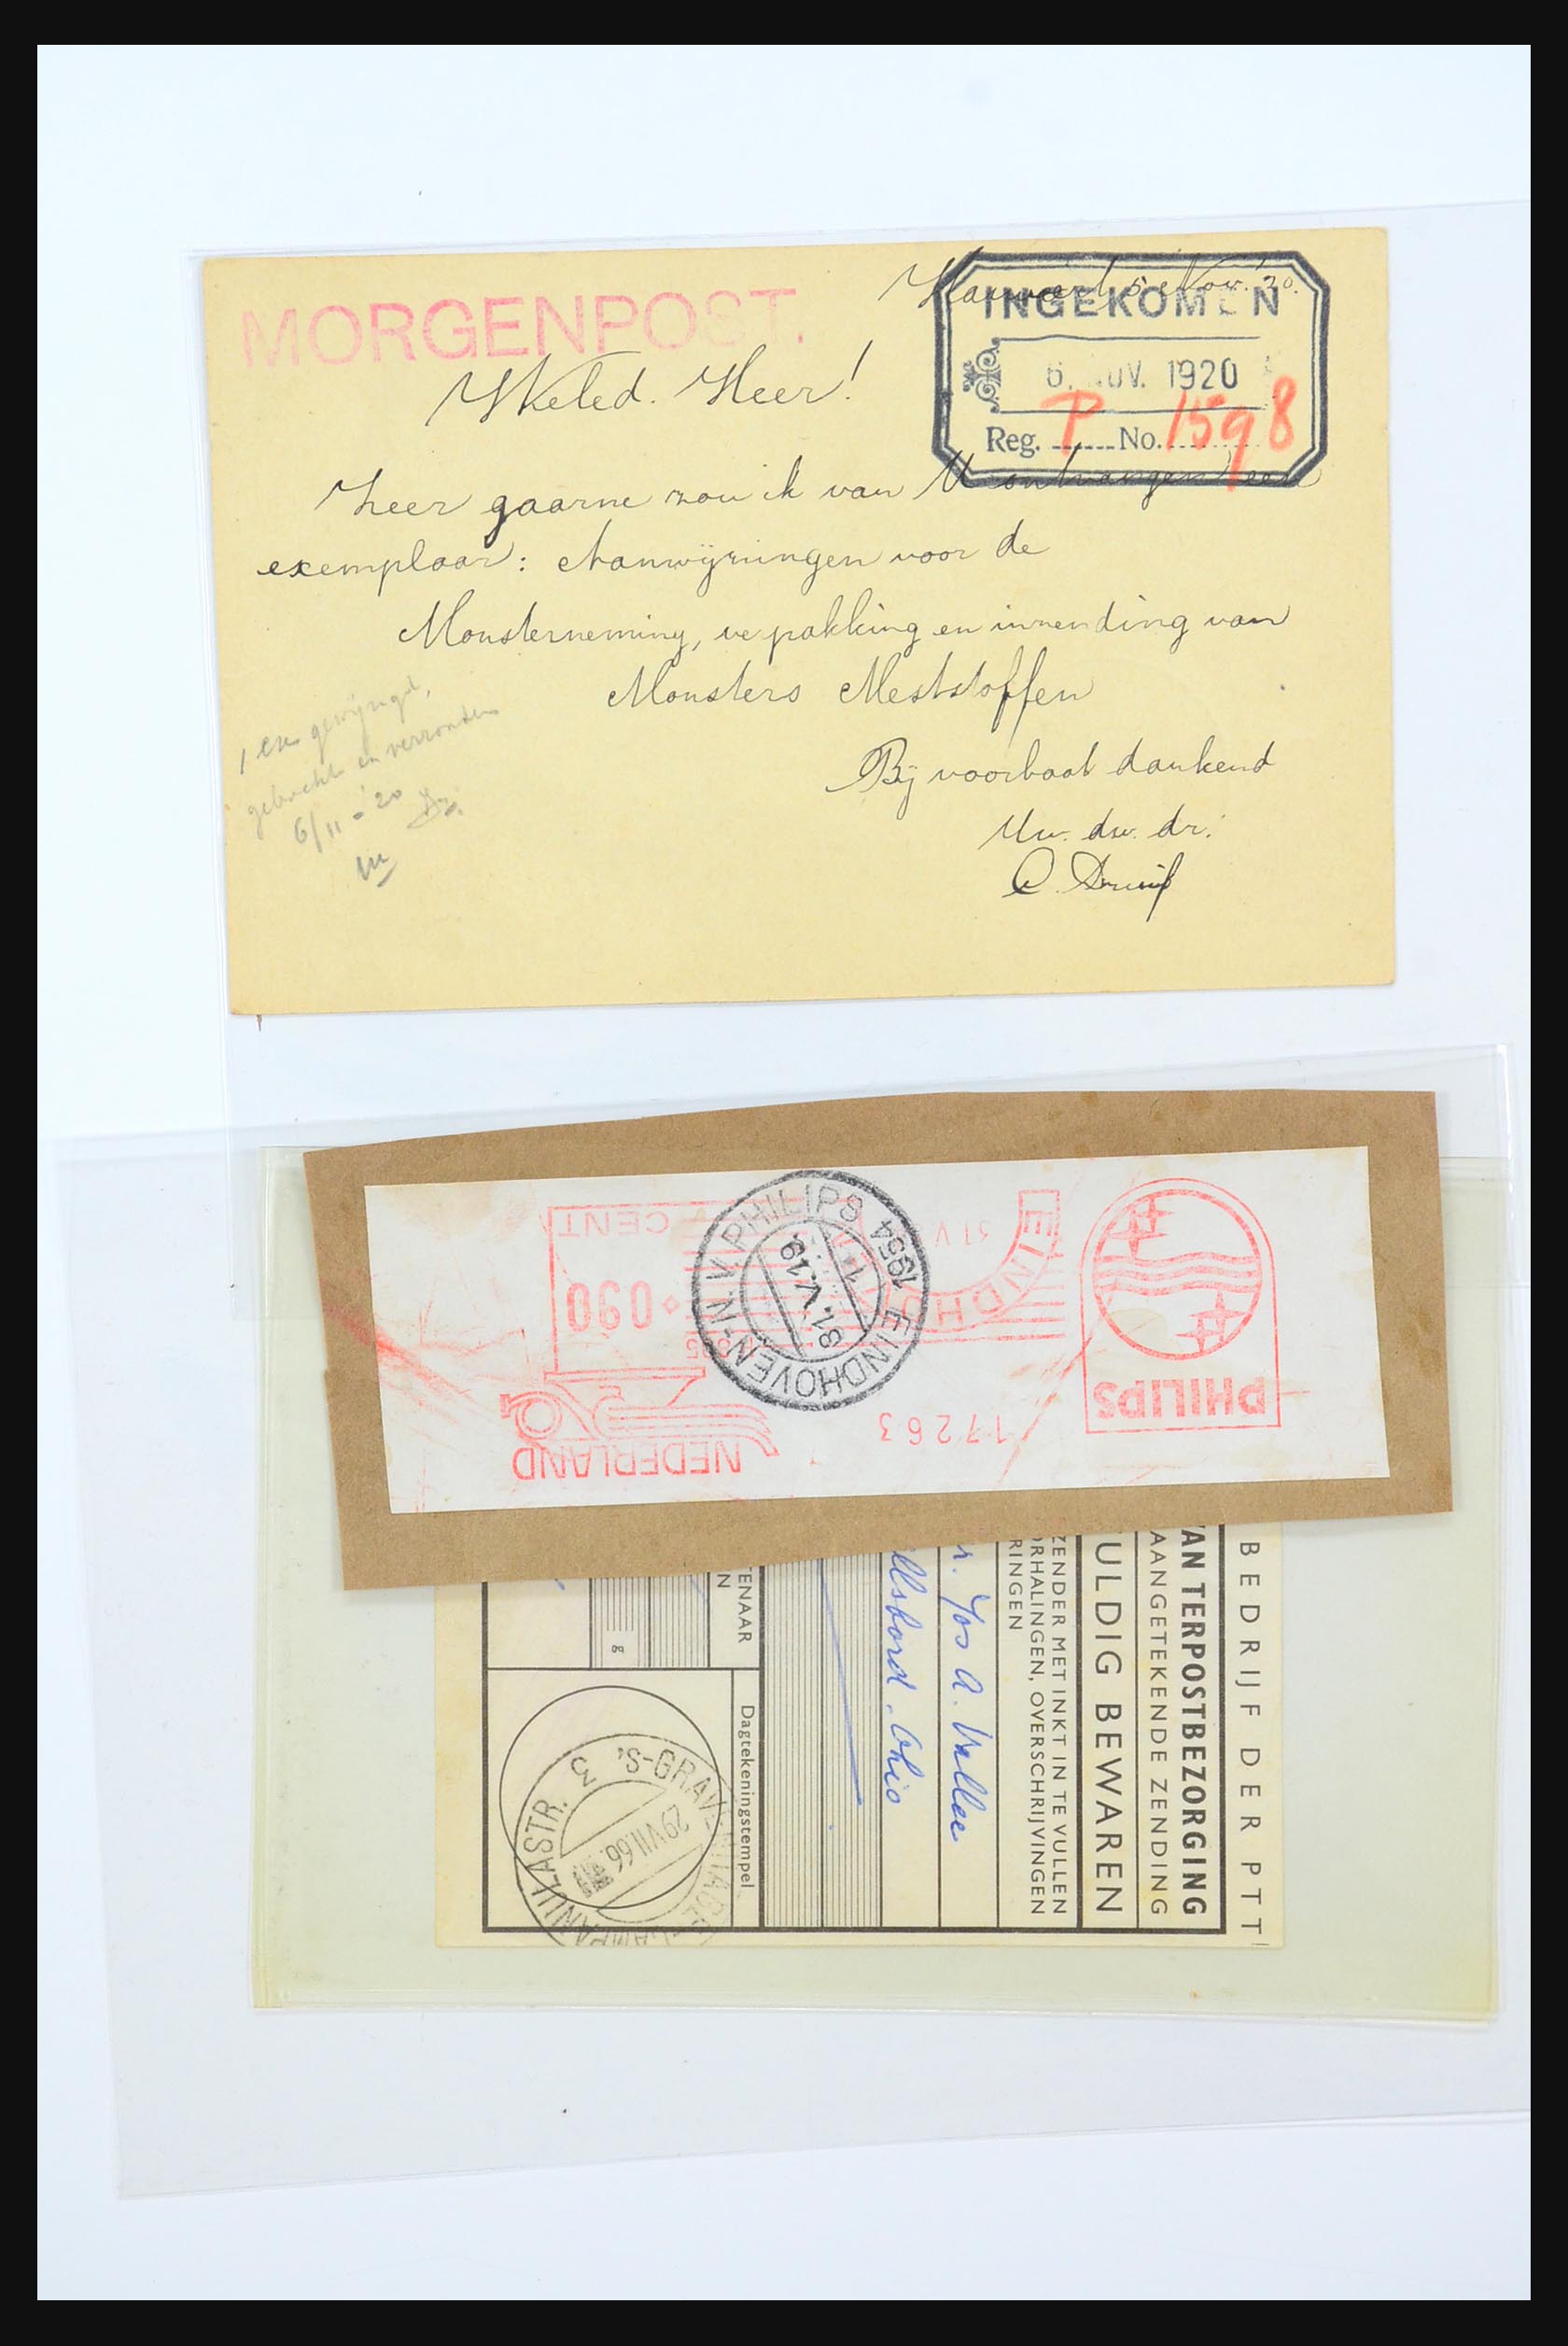 MORGENPOST.
5 Nov. '20.
INGEKOMEN
6. NOV. 1920
Reg. P No. 1598
WelEd. Heer!
Zeer gaarne zou ik van U ontvangen een
exemplaar: Aanwijzingen voor de
Monsterneming, verpakking en inzending van
Monsters Meststoffen
Bij voorbaat dankend
Uw. dw. dr.
C. Druif
1 ex
6/11 - '20
PHILIPS
17263
NEDERLAND
EINDHO
31 V
090
CENT
EINDHOVEN-N.V. PHILIPS
31.V.19 1954
1
BEDRIJF DER PTT
VAN TERPOSTBEZORGING
AANGETEKENDE ZENDING
ULDIG BEWAREN
ZENDER MET INKT IN TE VULLEN
ORHALINGEN, OVERSCHRIJVINGEN
RINGEN
r. Jos A. Vallee
llsbord. Ohio
TENAAR
N
g
Dagtekeningstempel
'S-GRAVENHAGE-CAMPANULASTR. 3
29 VII 66